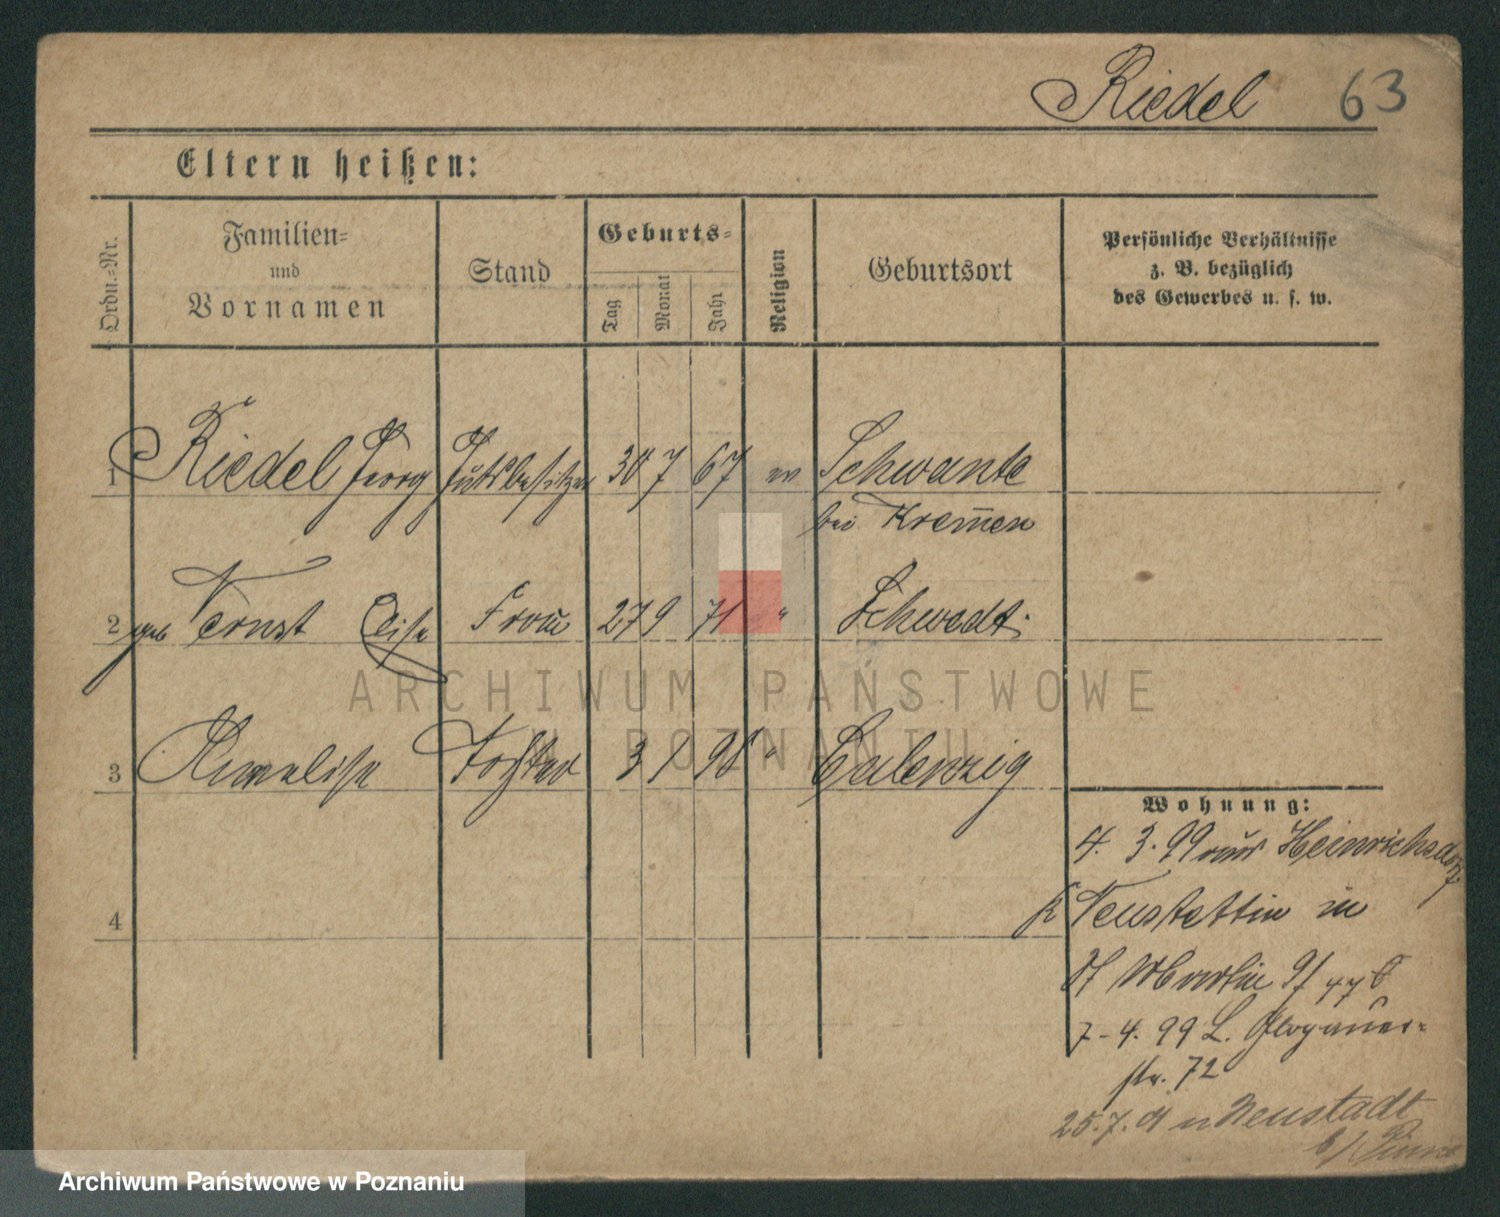 Riedel 63
Eltern heißen:
Ordn.-Nr.
Familien-
und
Vornamen
Stand
Geburts-
Tag
Monat
Jahr
Religion
Geburtsort
Persönliche Verhältnisse
z. B. bezüglich
des Gewerbes u. s. w.
1 Riedel Georg Gutsbesitzer 30 7 67 ev Schwante
bei Kremmen
2 geb Ernst Elise Frau 27 9 71 " Schwedt
3 Annelise Tochter 3 1 98 "
Wohnung:
4. 3. 99 aus Heinrichsdorf
Neustettin in
St Martin
7-4. 99 L. Glogauer-
str. 72
4
25.7. n Neustadt
b/ Pinne
ARCHIWUM PAŃSTWOWE
W POZNANIU
Archiwum Państwowe w Poznaniu